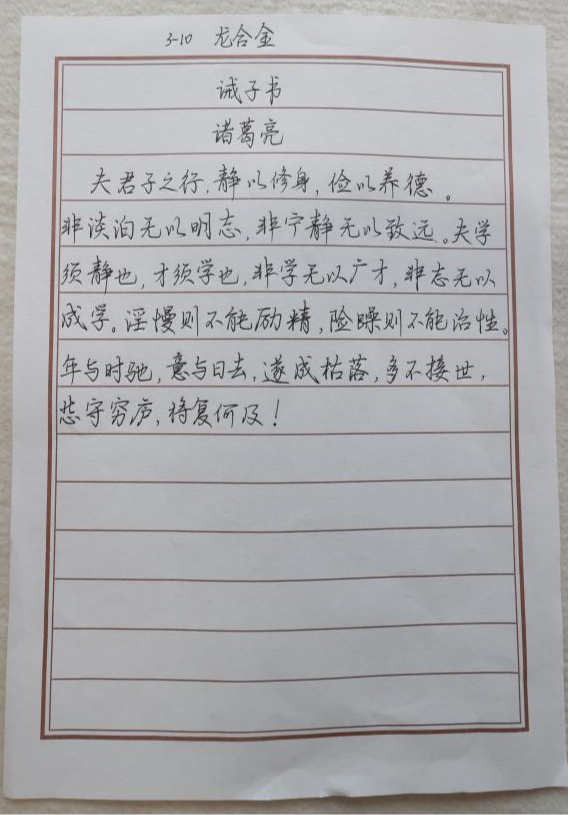 3-10 龙合金
诫子书
诸葛亮
夫君子之行,静以修身,俭以养德。
非淡泊无以明志,非宁静无以致远。夫学
须静也,才须学也,非学无以广才,非志无以
成学。淫慢则不能励精,险躁则不能治性。
年与时驰,意与日去,遂成枯落,多不接世,
悲守穷庐,将复何及!